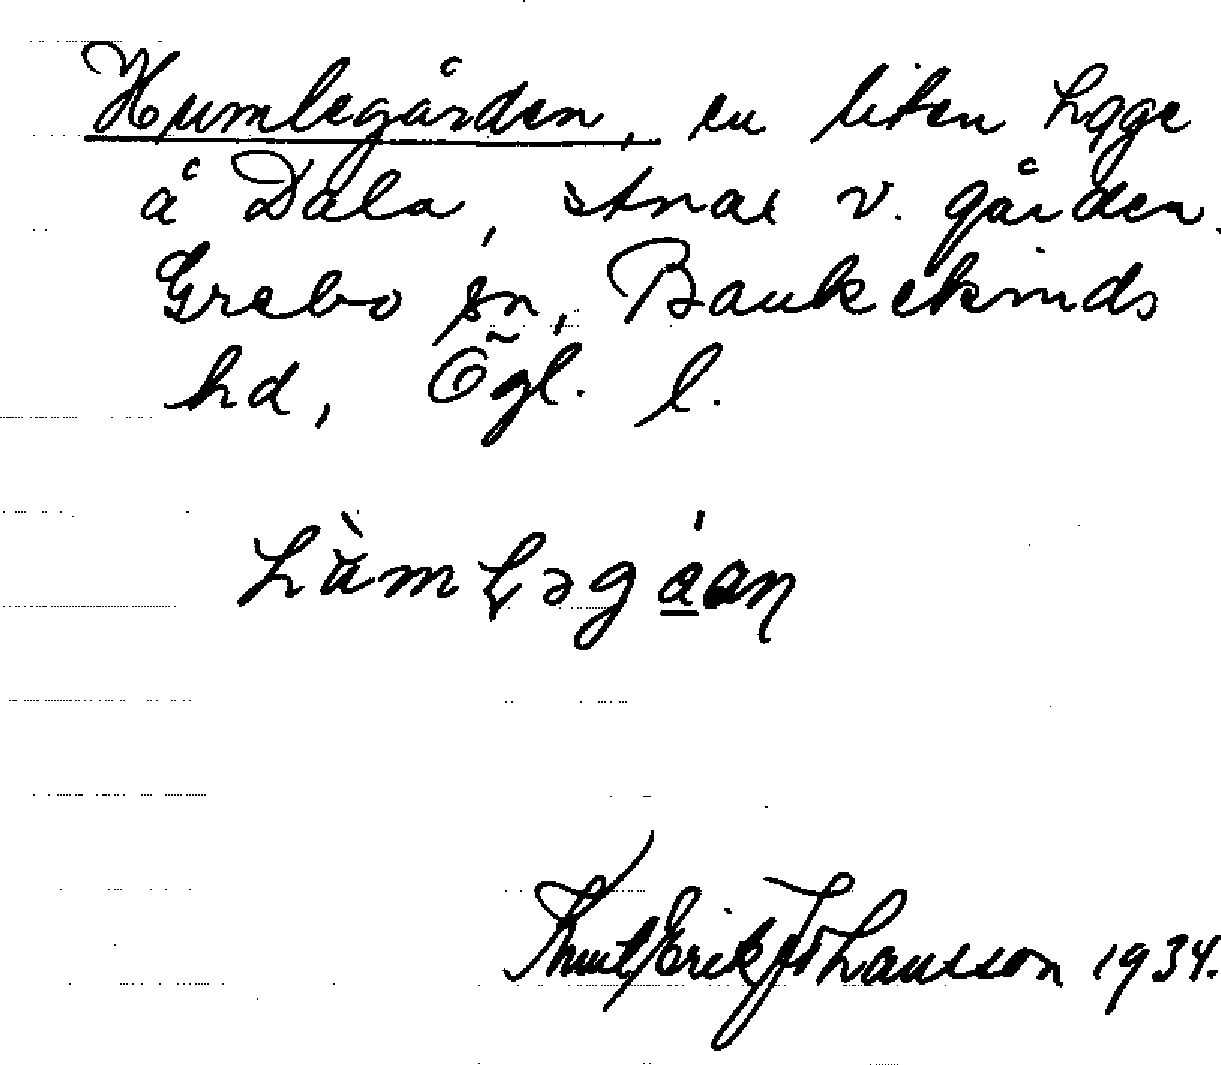 Humlegården, en liten hage
å Dala, strax v. gården.
Grebo sn, Bankekinds
hd, Ögl. l.
Knut Erik Johansson 1934.